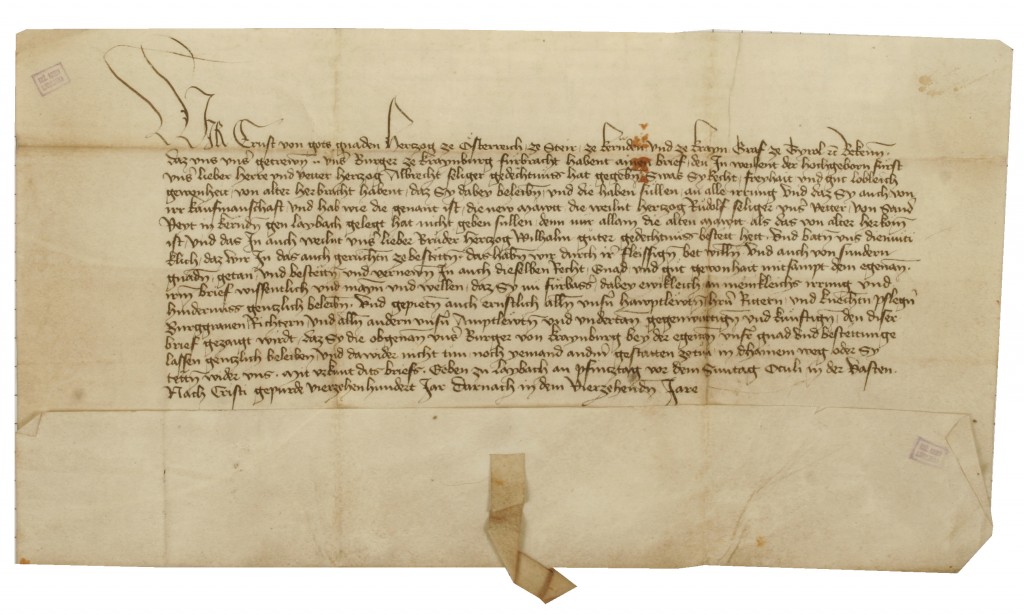 Wir Ernst von gots gnaden Herzog ze Osterreich, ze Steir, ze Kernden und ze Krayn Graf ze Tyrol etc Bekenn
daz uns uns getrewn .. uns Burger ze Kraynburg furbracht habent ainen brief, den In weilent der hochgeborn furst
uns lieber herre und vetter herzog Albrecht seliger gedechtnuss hat gegebn, Swas Sy Recht, freyhait und gut lobleich
gewonhait, von alter herbracht habent, daz Sy dabey beleibn, und die haben sullen, an alle irrung Und daz Sy auch von
irr kaufmanschaft Und hab wie die genant ist, die new mawtt die weilnt herzog Rudolf seliger uns vetter, von Sand
Veyt in kernden gen laybach gelegt hat nicht geben sullen, denn nur allain die alten mawtt als das von alter herkom
ist, Und das In auch weilnt uns lieber Bruder herzog Wilhalm guter gedechtnuss bestett hett, Und batn uns diemuti
klich, daz wir In das auch geruchtn ze bestetn, das habn wir durch ir fleissign bet willn Und auch von sundern
gnadn, getan, Und bestetn und vernewn In auch dieselben Recht, Gnad und gut gewonhait mitsampt dem egenan.
irm brief wissentlich und mayn und wellen, daz Sy nu furbass dabey ewikleich an meinkleichs irrung und
hindernuss genzlich beleibn. Und gepietn auch ernstlich alln unsn hawptlewtn hrn Rittern und knechtn pflegn
Burggraven, Richtern Und alln andern unsn Amptlewtn und undertan gegenwurttign und kunftign, den diser
brief gezaigt wirdt, daz Sy die obgenan uns Burger von kraynburg bey der egenan unsr gnad und bestettunge
lassen genzlich beleiben Und dawider nicht tun, noch yemand andern gestatten zetun in dhainem weg oder Sy
tetten wider uns. Mit urkunt dits briefs, Geben zu Laybach an phinztag vor dem Suntag Oculi in der Vasten.
Nach Cristi gepurde vierzehenhundert Jar Darnach in dem Vierzehendn Jare